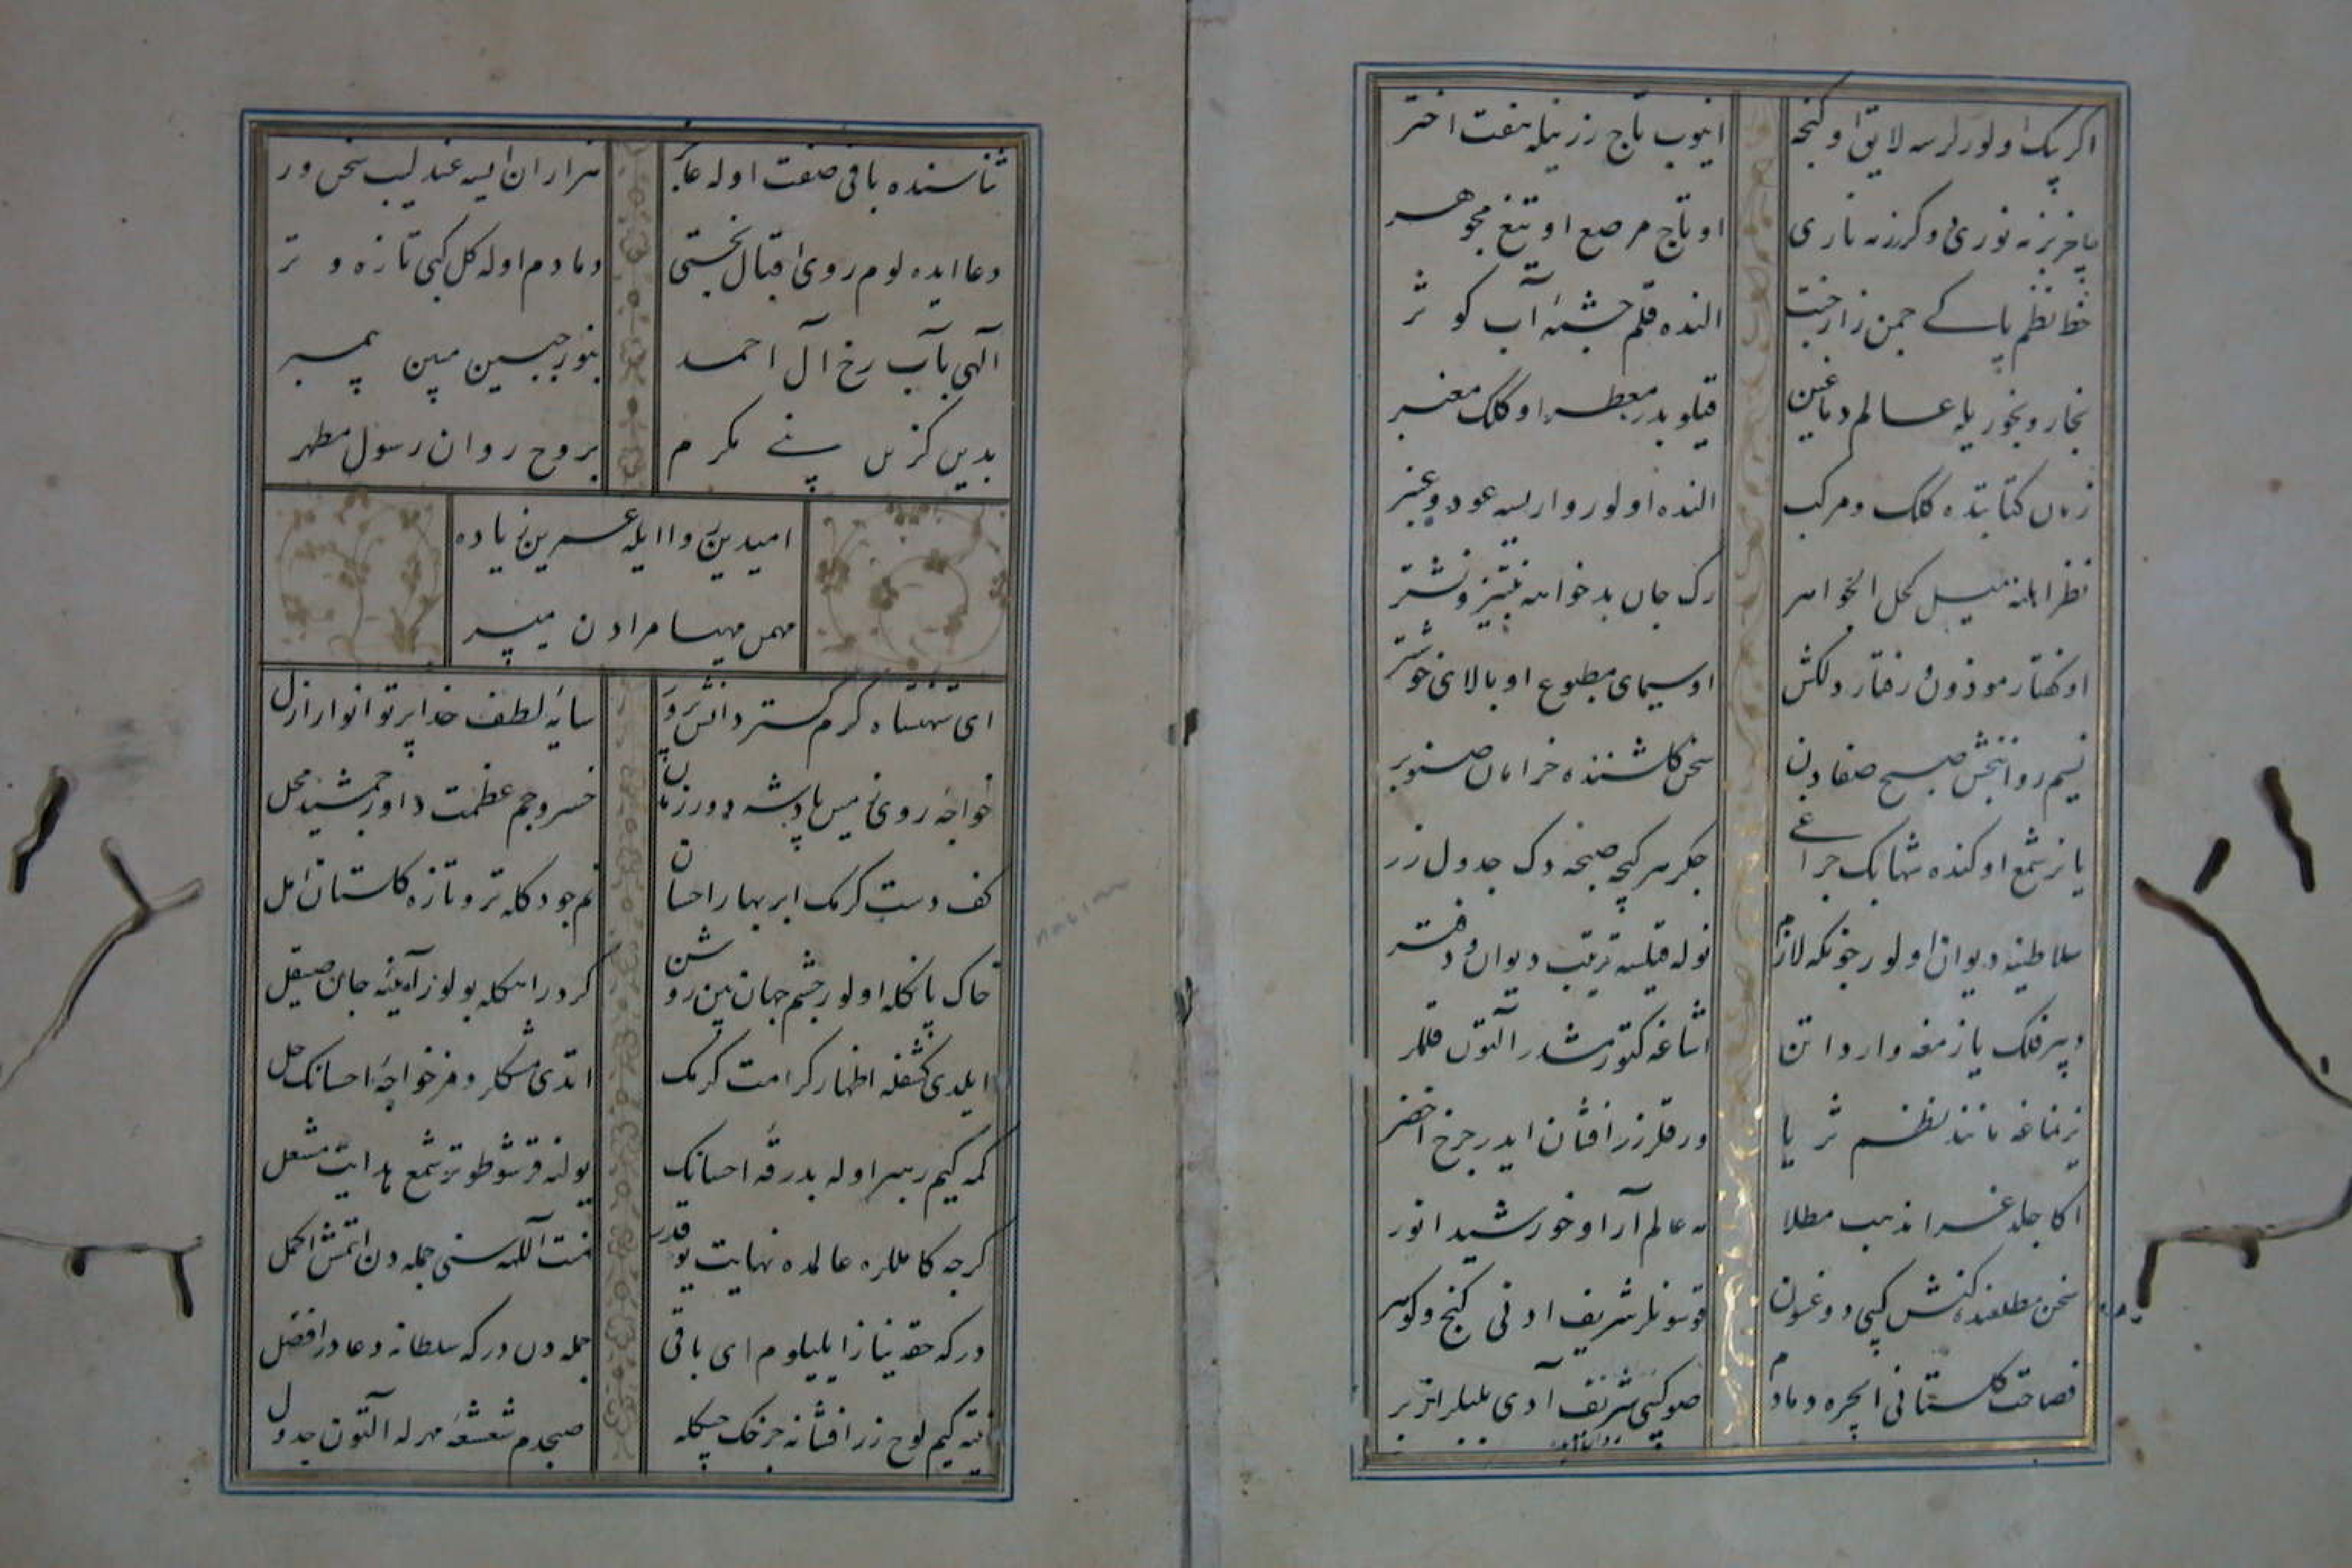 اكر پك اولورلرسه لايق اوكنجه
ايوب تاج زرنيله هفت اختر
او تاج مرصع او تيغ مجوهر
خط نظم پاكى چمن زار جنت
النده قلم چشمهٔ آب كوثر
بخار و بخور يله عالم دماغين
قيلوبدر معطر او كلك معنبر
زمان كتابتده كلك و مركب
النده اولور وار ايسه عود و عنبر
نظر اهلنه ميل كحل الجواهر
رك جان بدخواهه تيز و نشتر
او كفتار موزون و رفتار دلكش
او سيماى مطبوع او بالاى خوشتر
نسيم روانبخش صبح صفادن
سخن كلشننده خرامان صنوبر
يانر شمع اوكنده شهابك چراغى
چكر هر كيجه صبحه دك جدول زر
سلاطينه ديوان اولور چونكه لازم
نوله قيلسه ترتيب ديوان و دفتر
دبير فلك يازمغه واردا تن
اشاغه كتورمشدر آلتون قلملر
يزلمغه مانند نظم ثريا
ورقلر زرافشان ايدر چرخ اخضر
اكا جلد غرا مذهب مطلا
مه عالم آرا و خورشيد انور
سخن مطلعنده كنش كبى دوغسون
قوسونلر شريف اوني كنج و كوهر
فصاحت كلستانى ايچره دمادم
صو كبى شريف آدى بلبلر ازبر
ثناسنده باقى صفت اوله عاجز
هزاران ايسه عندليب سخن ور
دعا ايده لوم روى اقبال بختى
دمادم اوله كل كبى تازه و تر
آلهى بآب رخ آل احمد
بنور جبين مبين پيمبر
بدين كزين نبى مكرم
بروح روان رسول مطهر
اميدين روا ايله عمرين زياده
مهمن مهيا مرادن ميسر
اى شهنشاه كرم كستر دانش پرور
سايهٔ لطف خدا پرتو انوار ازل
خواجهٔ روى زمين پادشه دور زمان
خسرو جم عظمت داور جمشيد محل
كف دست كرمك ابر بهار احسان
نم جودكله تر و تازه كلستان امل
خاك پانكله اولور چشم جهان بين روشن
كرد راهكله بولور آهينهٔ جان صيقل
ايلدى كشفله اظهار كرامت كرمك
اتدى مشكللرومز خواجهٔ احسانك حل
كمه كيم رهبر اوله بدرقهٔ احسانك
يولنه قرشو طوتر شمع هدايت مشعل
كرچه كامللره عالمده نهايت يوقدر
منت اللهه سنى جمله دن اتمش اكمل
دركه حقه نياز ايليلوم اى باقى
جمله دن دركه سلطانه دعادر افضل
نيته كيم لوح زرافشانه چرخك چكله
صبحدم شعشعهٔ مهرله آلتون جدول